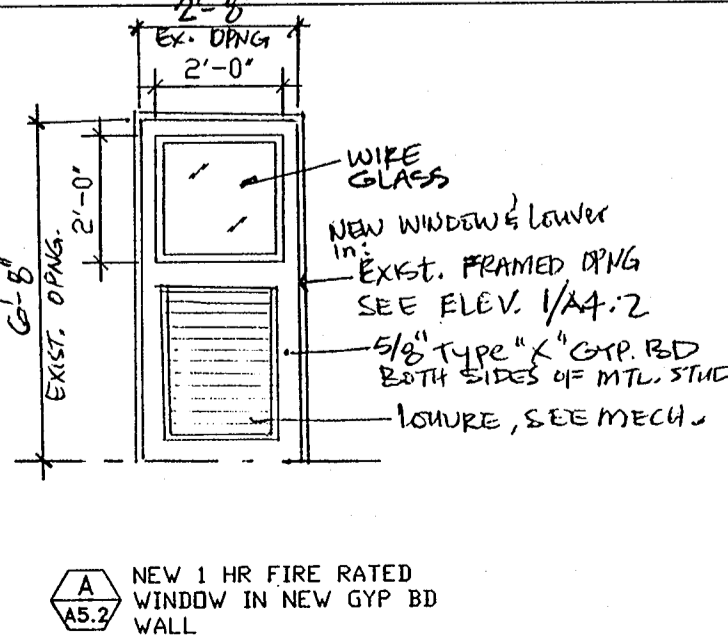 2'-8"
EX. OPNG
2'-0"
WIRE
GLASS
2'-0"
6'-8"
EXIST. OPNG.
NEW WINDOW & LOUVER
in:
EXIST. FRAMED OPNG
SEE ELEV. 1/A4.2
5/8" TYPE "X" GYP. BD
BOTH SIDES OF MTL. STUD
LOUVRE, SEE MECH.
A
A5.2
NEW 1 HR FIRE RATED
WINDOW IN NEW GYP BD
WALL